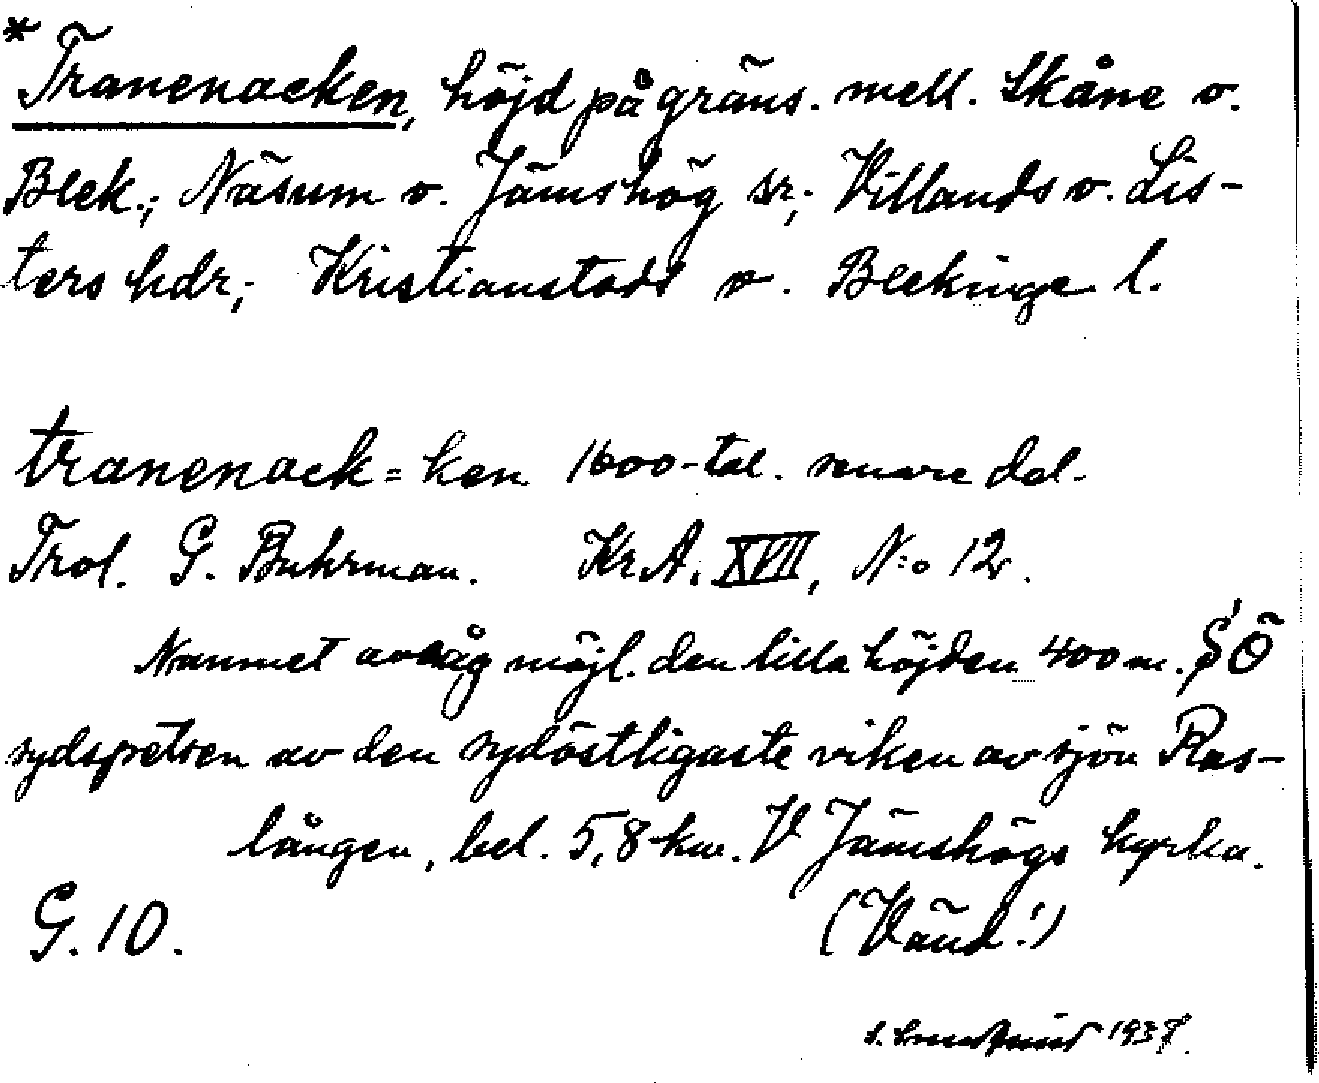 *Tranenacken, höjd på gräns. mell. Skåne o.
Blek.; Näsum o. Jämshög sr; Villands o. Lis-
ters hdr; Kristianstads o. Blekinge l.
tranenack=ken 1600-tal. senare del.
Trol. G. Buhrman. Kr.A. XVII, N:o 12.
Namnet avsåg möjl. den lilla höjden 400 m. SÖ
sydspetsen av den sydöstligaste viken av sjön Ras-
lången, bel. 5,8 km. V Jämshögs kyrka.
G. 10. (Vänd!)
1937.